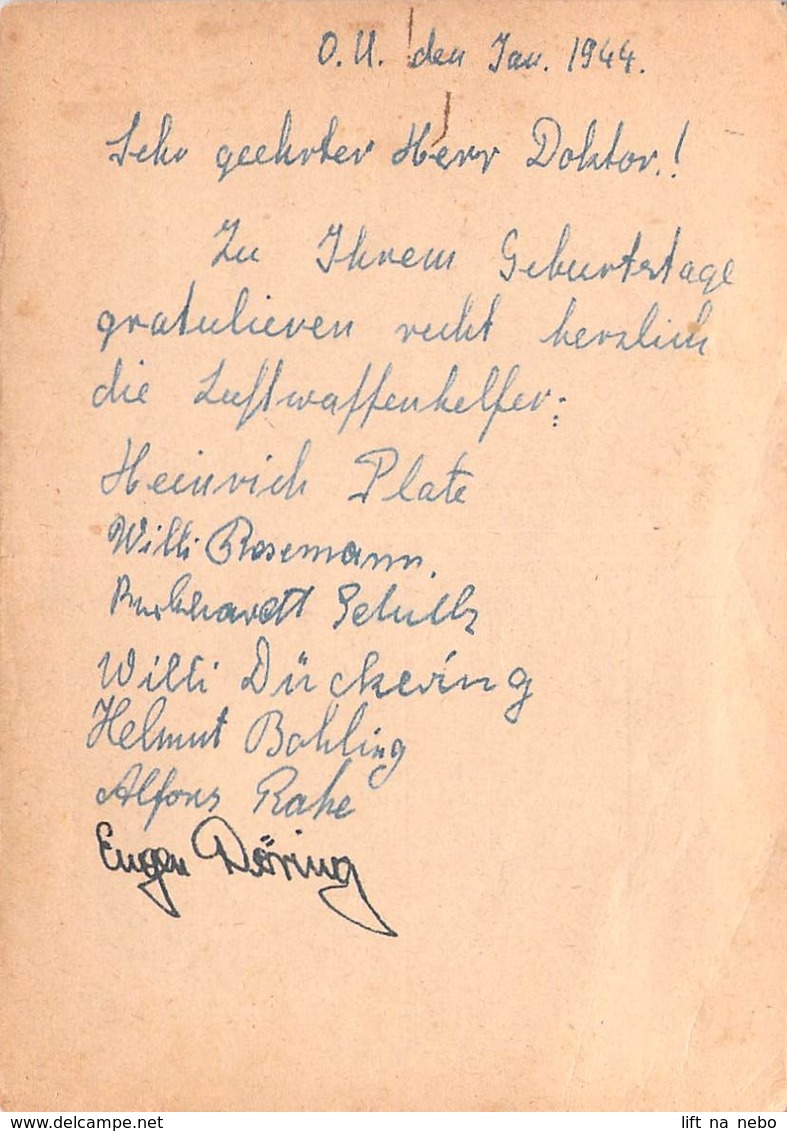 O.U. den Jan. 1944.
Sehr geehrter Herr Doktor!
Zu Ihrem Geburtstage
gratulieren recht herzlich
die Luftwaffenhelfer:
Heinrich Plate
Willi Rosemann.
Burkhardt Schulz
Willi Dückering
Helmut Bohling
Alfons Rahe
Eugen Döring
www.delcampe.net
lift na nebo